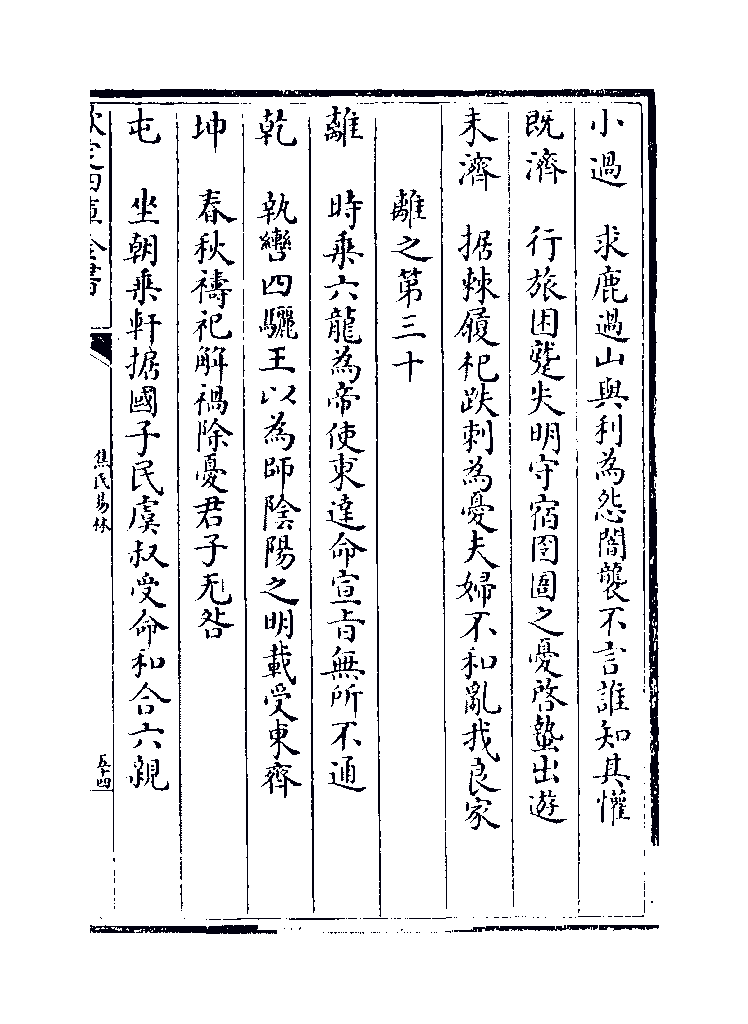 小過　求鹿過山與利為怨闇聾不言誰知其懽
既濟　行旅困蹵失明守宿囹圄之憂啓蟄出遊
未濟　据棘履杞跌刺為憂夫婦不和亂我良家
離之第三十
離　時乘六龍為帝使東達命宣旨無所不通
乾　執轡四驪王以為師陰陽之明載受東齊
坤　春秋禱祀解禍除憂君子无咎
屯　坐朝乘軒據國子民虞叔受命和合六親
欽定四庫全書
焦氏易林
五十四